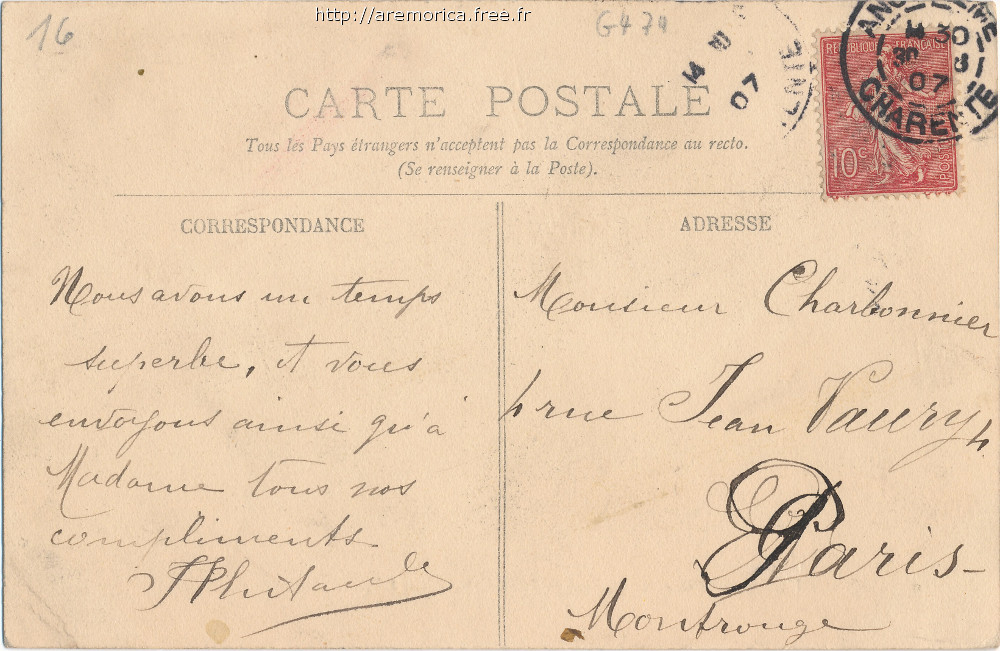 http://aremorica.free.fr
16
G474
14
07
ANGOULEME
30
8
07
CHARENTE
RÉPUBLIQUE FRANÇAISE
10c
POSTES
CARTE POSTALE
Tous les Pays étrangers n'acceptent pas la Correspondance au recto.
(Se renseigner à la Poste).
CORRESPONDANCE
Nous avons un temps
superbe, et vous
envoyons ainsi qu'à
Madame tous nos
compliments
ADRESSE
Monsieur Charbonnier
4 rue Jean Vaury 4
Paris -
Montrouge